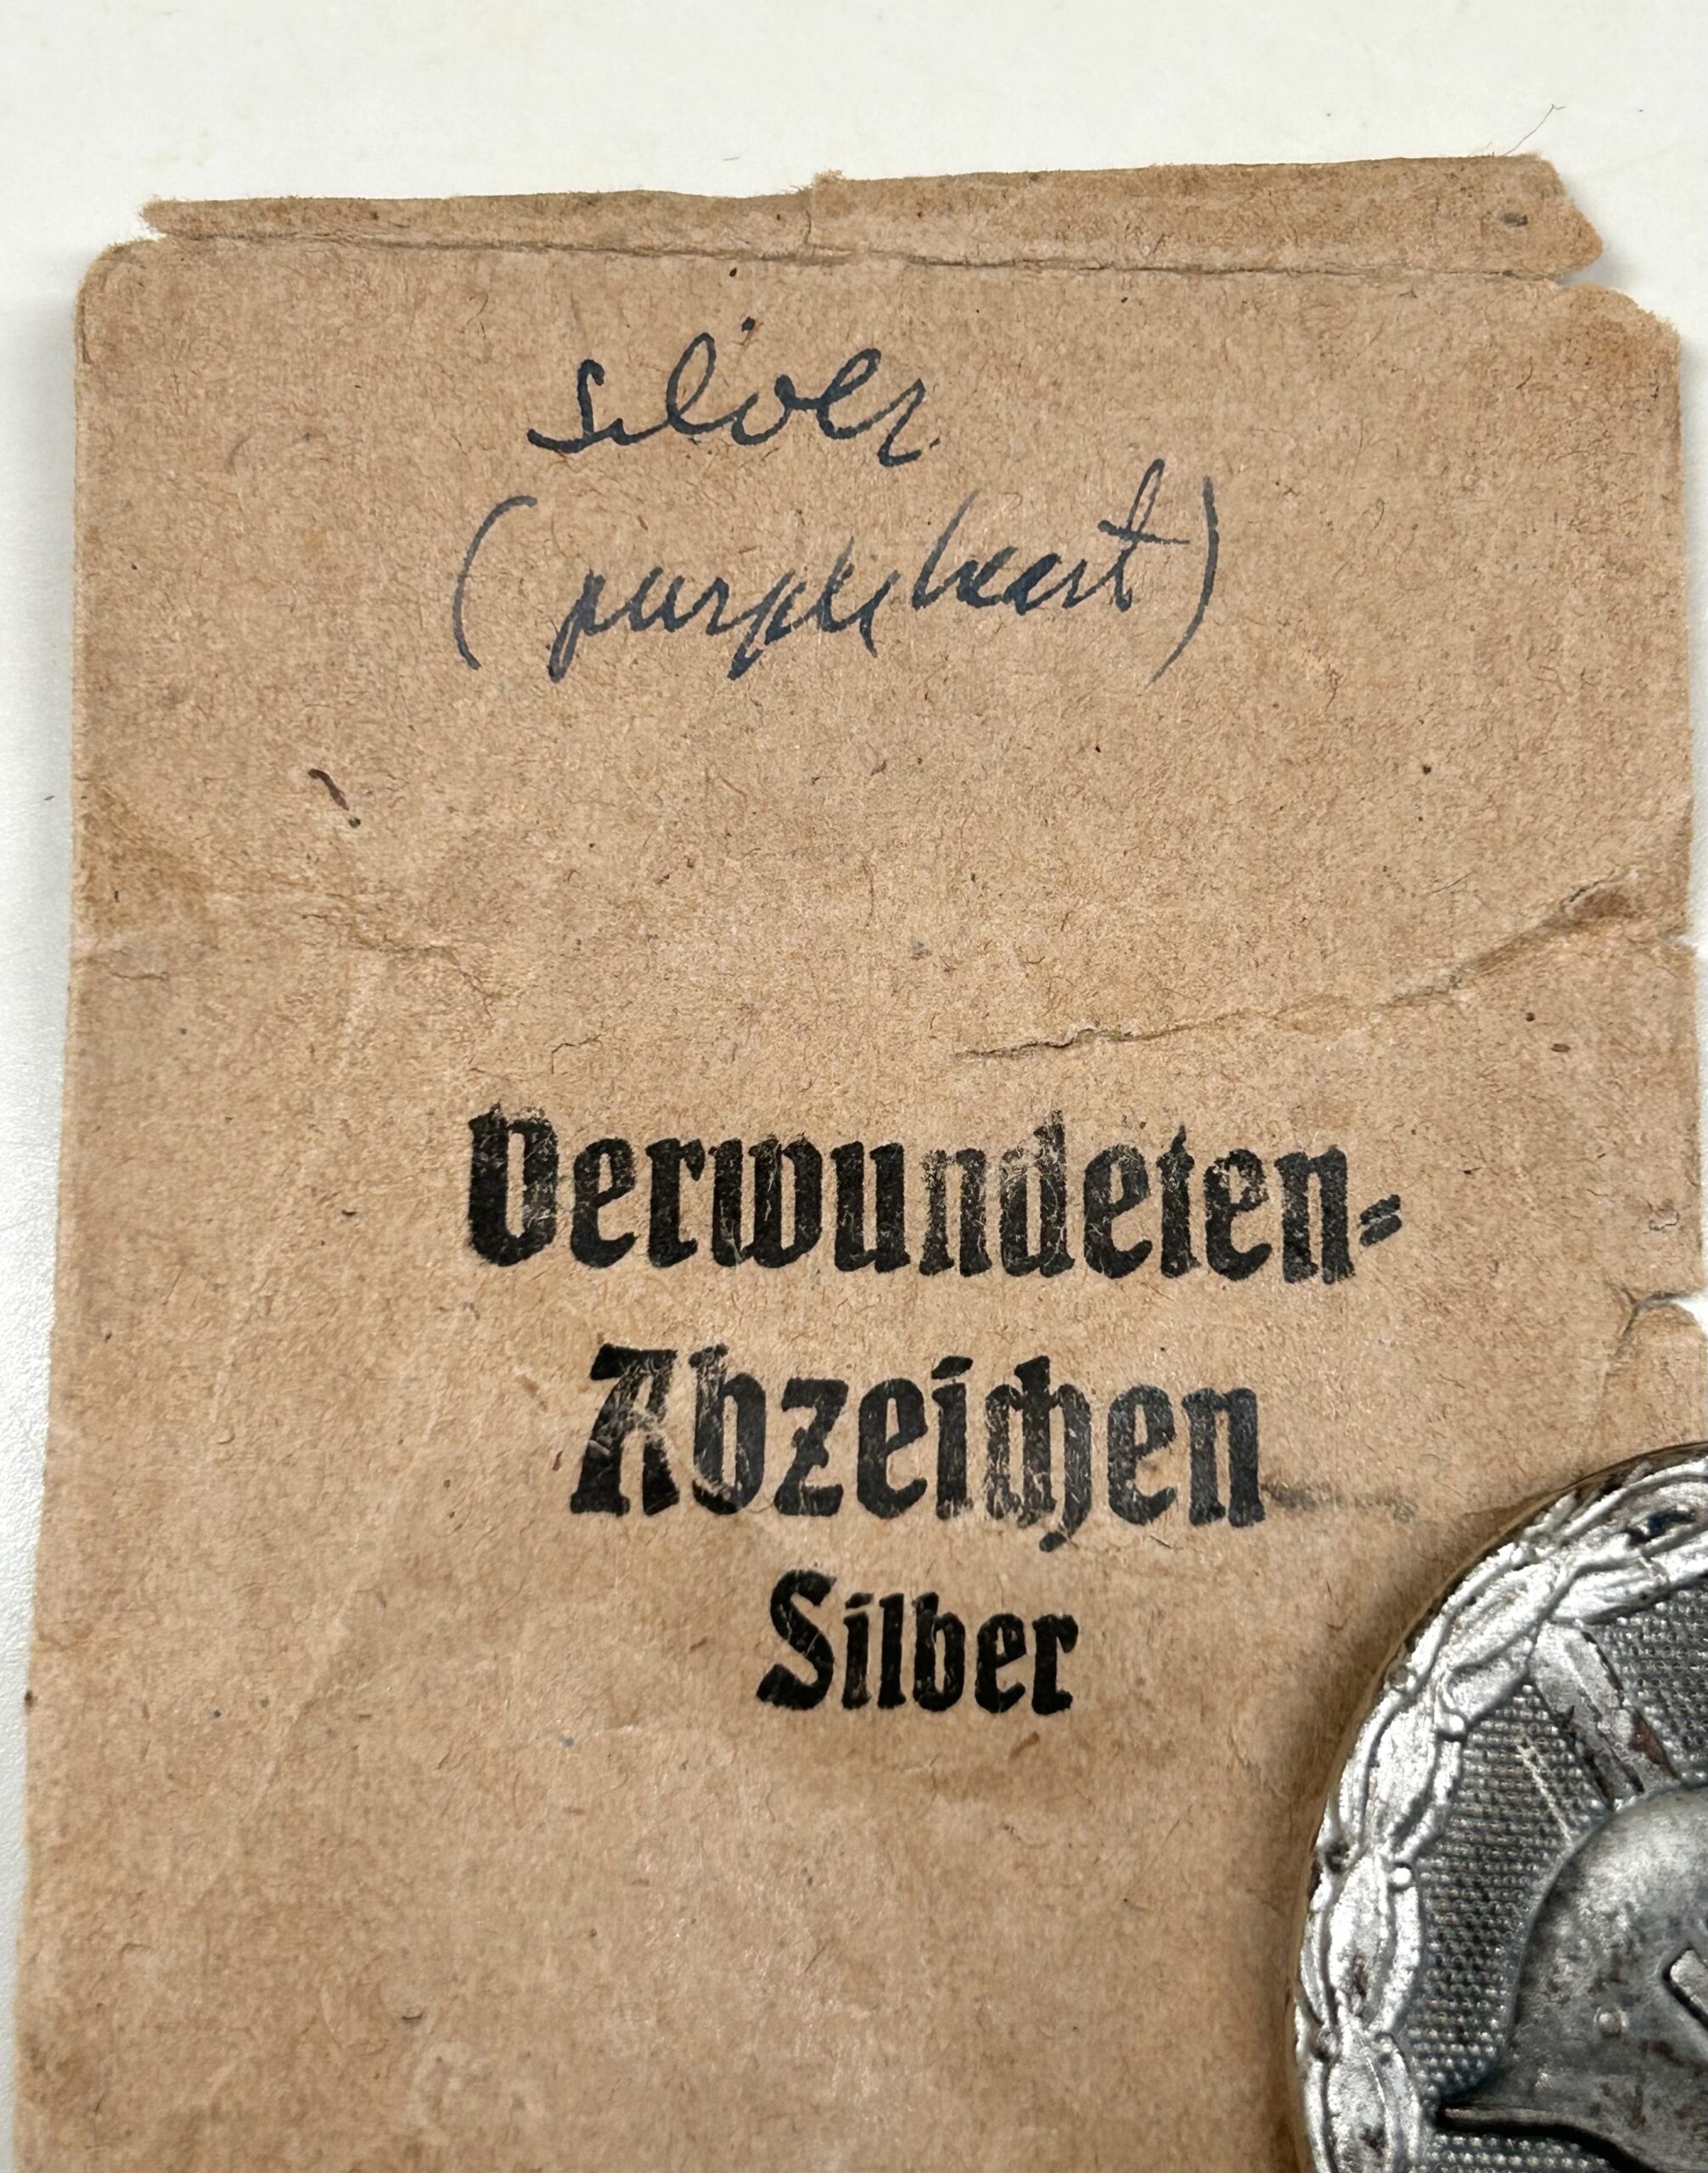 silver
(purple heart)
Verwundeten=
Abzeichen
Silber